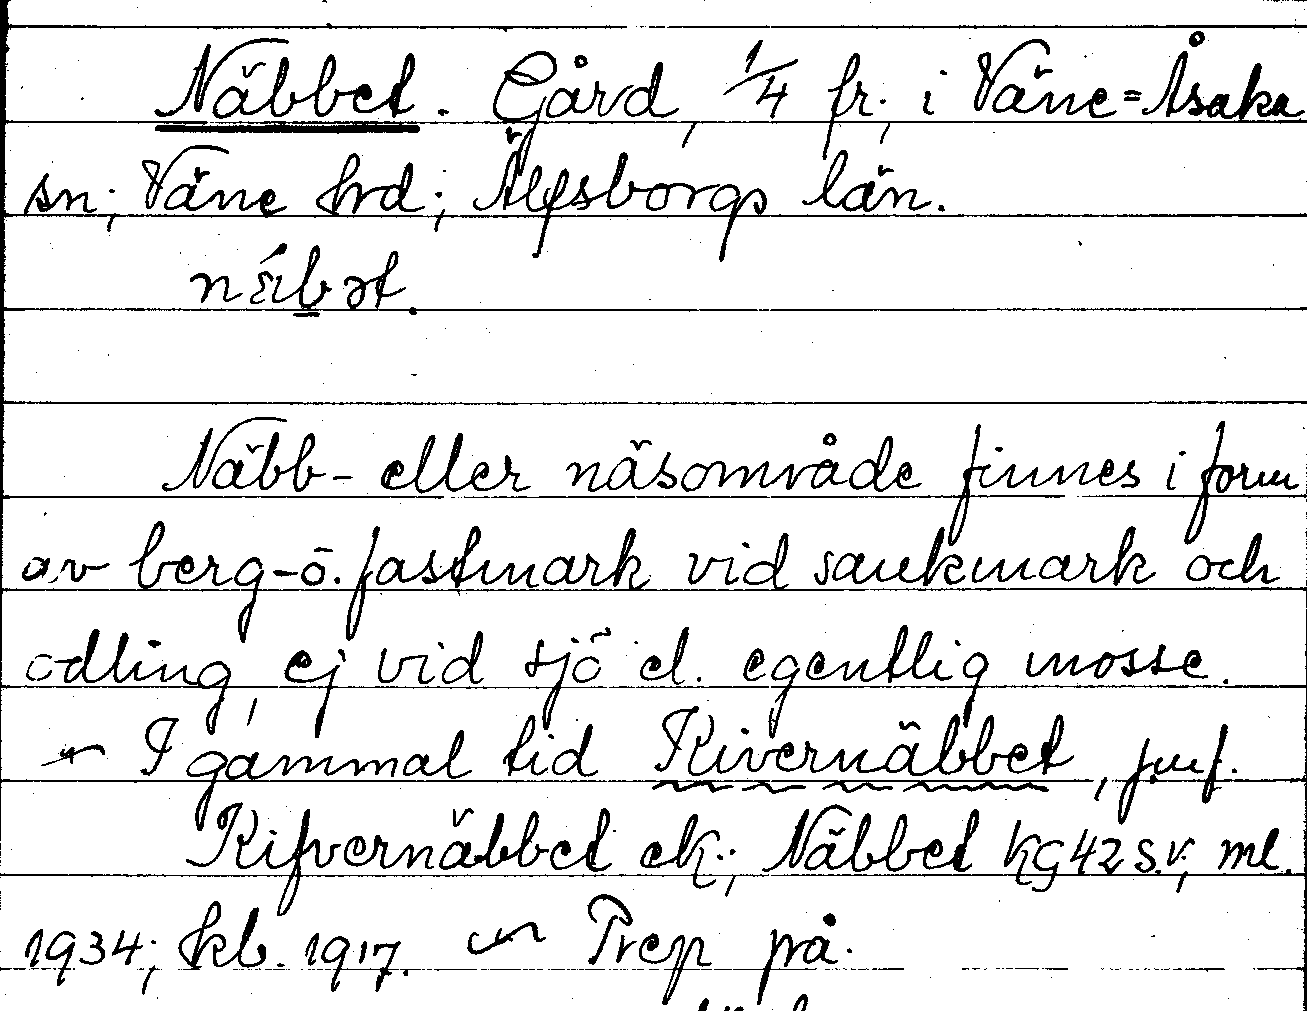 Näbbet. Gård, 1/4 fr., i Väne=Åsaka
sn; Väne hrd; Älfsborgs län.
Näbb- eller näsområde finnes i form
av berg-ö. fastmark vid sankmark och
odling, ej vid sjö el. egentlig mosse.
I gammal tid Kivernäbbet, jmf.
Kifvernäbbet ek.; Näbbet KG42S.V.; ml.
1934; kb. 1917. Prep på.